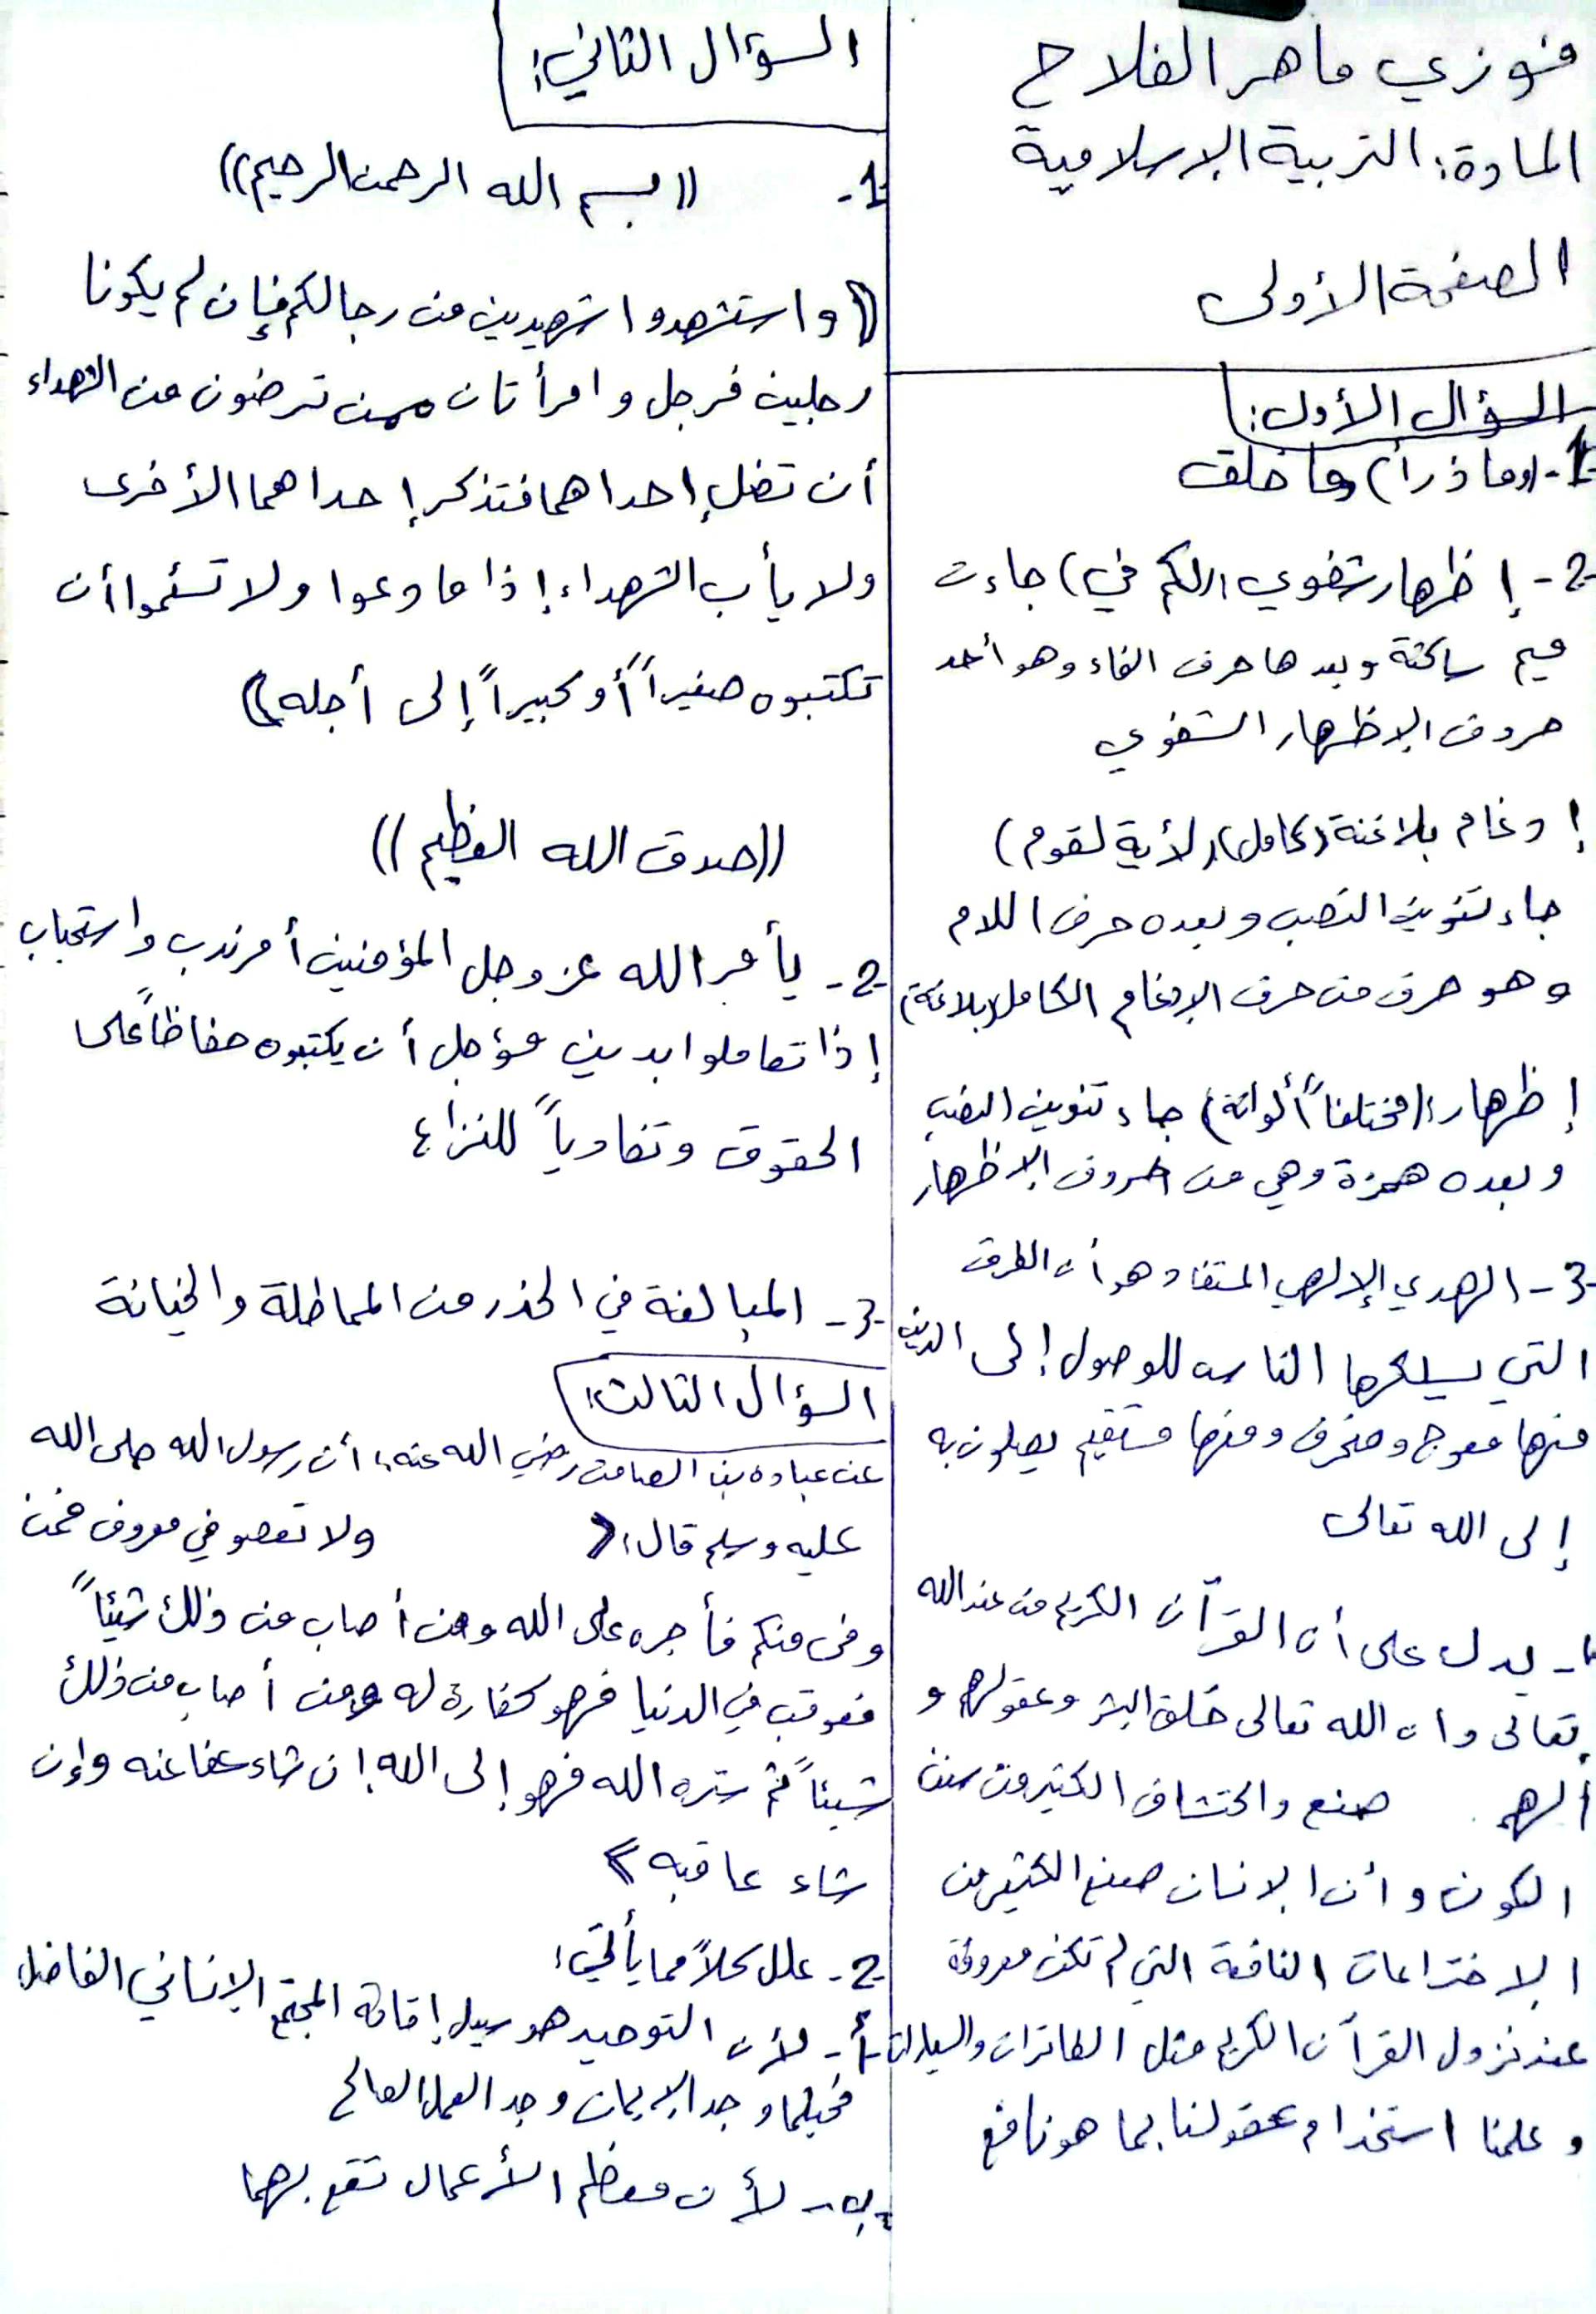 فوزي ماهر الفلاح
المادة: التربية الإسلامية
الصفحة الأولى
السؤال الأول:
1- (وما ذرأ) وما خلق
2- إظهار شفوي (لكم في) جاءت
ميم ساكنة وبعدها حرف الفاء وهو أحد
حروف الإظهار الشفوي
إدغام بلاغنة (كامل) (لأية لقوم)
جاء تنوين النصب وبعده حرف اللام
وهو حرف من حرف الإدغام الكامل (بلاغنة)
إظهار: (مختلفاً ألوانه) جاء تنوين النصب
وبعده همزة وهي من حروف الإظهار
3- الهدي الإلهي المستفاد هو أن الطرق
التي يسلكها الناس للوصول إلى الدين
منها معوج ومنحرف ومنها مستقيم يصلون به
إلى الله تعالى
يدل على أن القرآن الكريم من عند الله
تعالى وأن الله تعالى خلق البشر وعقولهم و
ألهم صنع واكتشاف الكثير من سنن
الكون وأن الإنسان صنع الكثير من
الاختراعات النافعة التي لم تكن معروفة
عند نزول القرآن الكريم مثل الطائرات والسيارات
وعلمنا استخدام عقولنا بما هو نافع
السؤال الثاني:
1- ((بسم الله الرحمن الرحيم))
(( واستشهدوا شهيدين من رجالكم فإن لم يكونا
رجلين فرجل وامرأتان ممن ترضون من الشهداء
أن تضل إحداهما فتذكر إحداهما الأخرى
ولا يأب الشهداء إذا ما دعوا ولا تسئموا أن
تكتبوه صغيراً أو كبيراً إلى أجله ))
((صدق الله العظيم))
2- يأمر الله عز وجل المؤمنين أمر ندب واستحباب
إذا تعاملوا بدين مؤجل أن يكتبوه حفاظاً على
الحقوق وتفادياً للنزاع
3- المبالغة في الحذر من المماطلة والخيانة
السؤال الثالث:
عن عباده بن الصامت رضي الله عنه: أن رسول الله صلى الله
عليه وسلم قال: « ولا تعصو في معروف فمن
وفى منكم فأجره على الله ومن أصاب من ذلك شيئاً
فعوقب في الدنيا فهو كفارة له ومن أصاب من ذلك
شيئاً ثم ستره الله فهو إلى الله إن شاء عفا عنه وإن
شاء عاقبه »
2- علل كلاً مما يأتي:
أ- لأن التوحيد هو سبيل إقامة المجتمع الإنساني الفاضل
فحيثما وجد الإيمان وجد العمل الصالح
ب- لأن معظم الأعمال تقع بهما